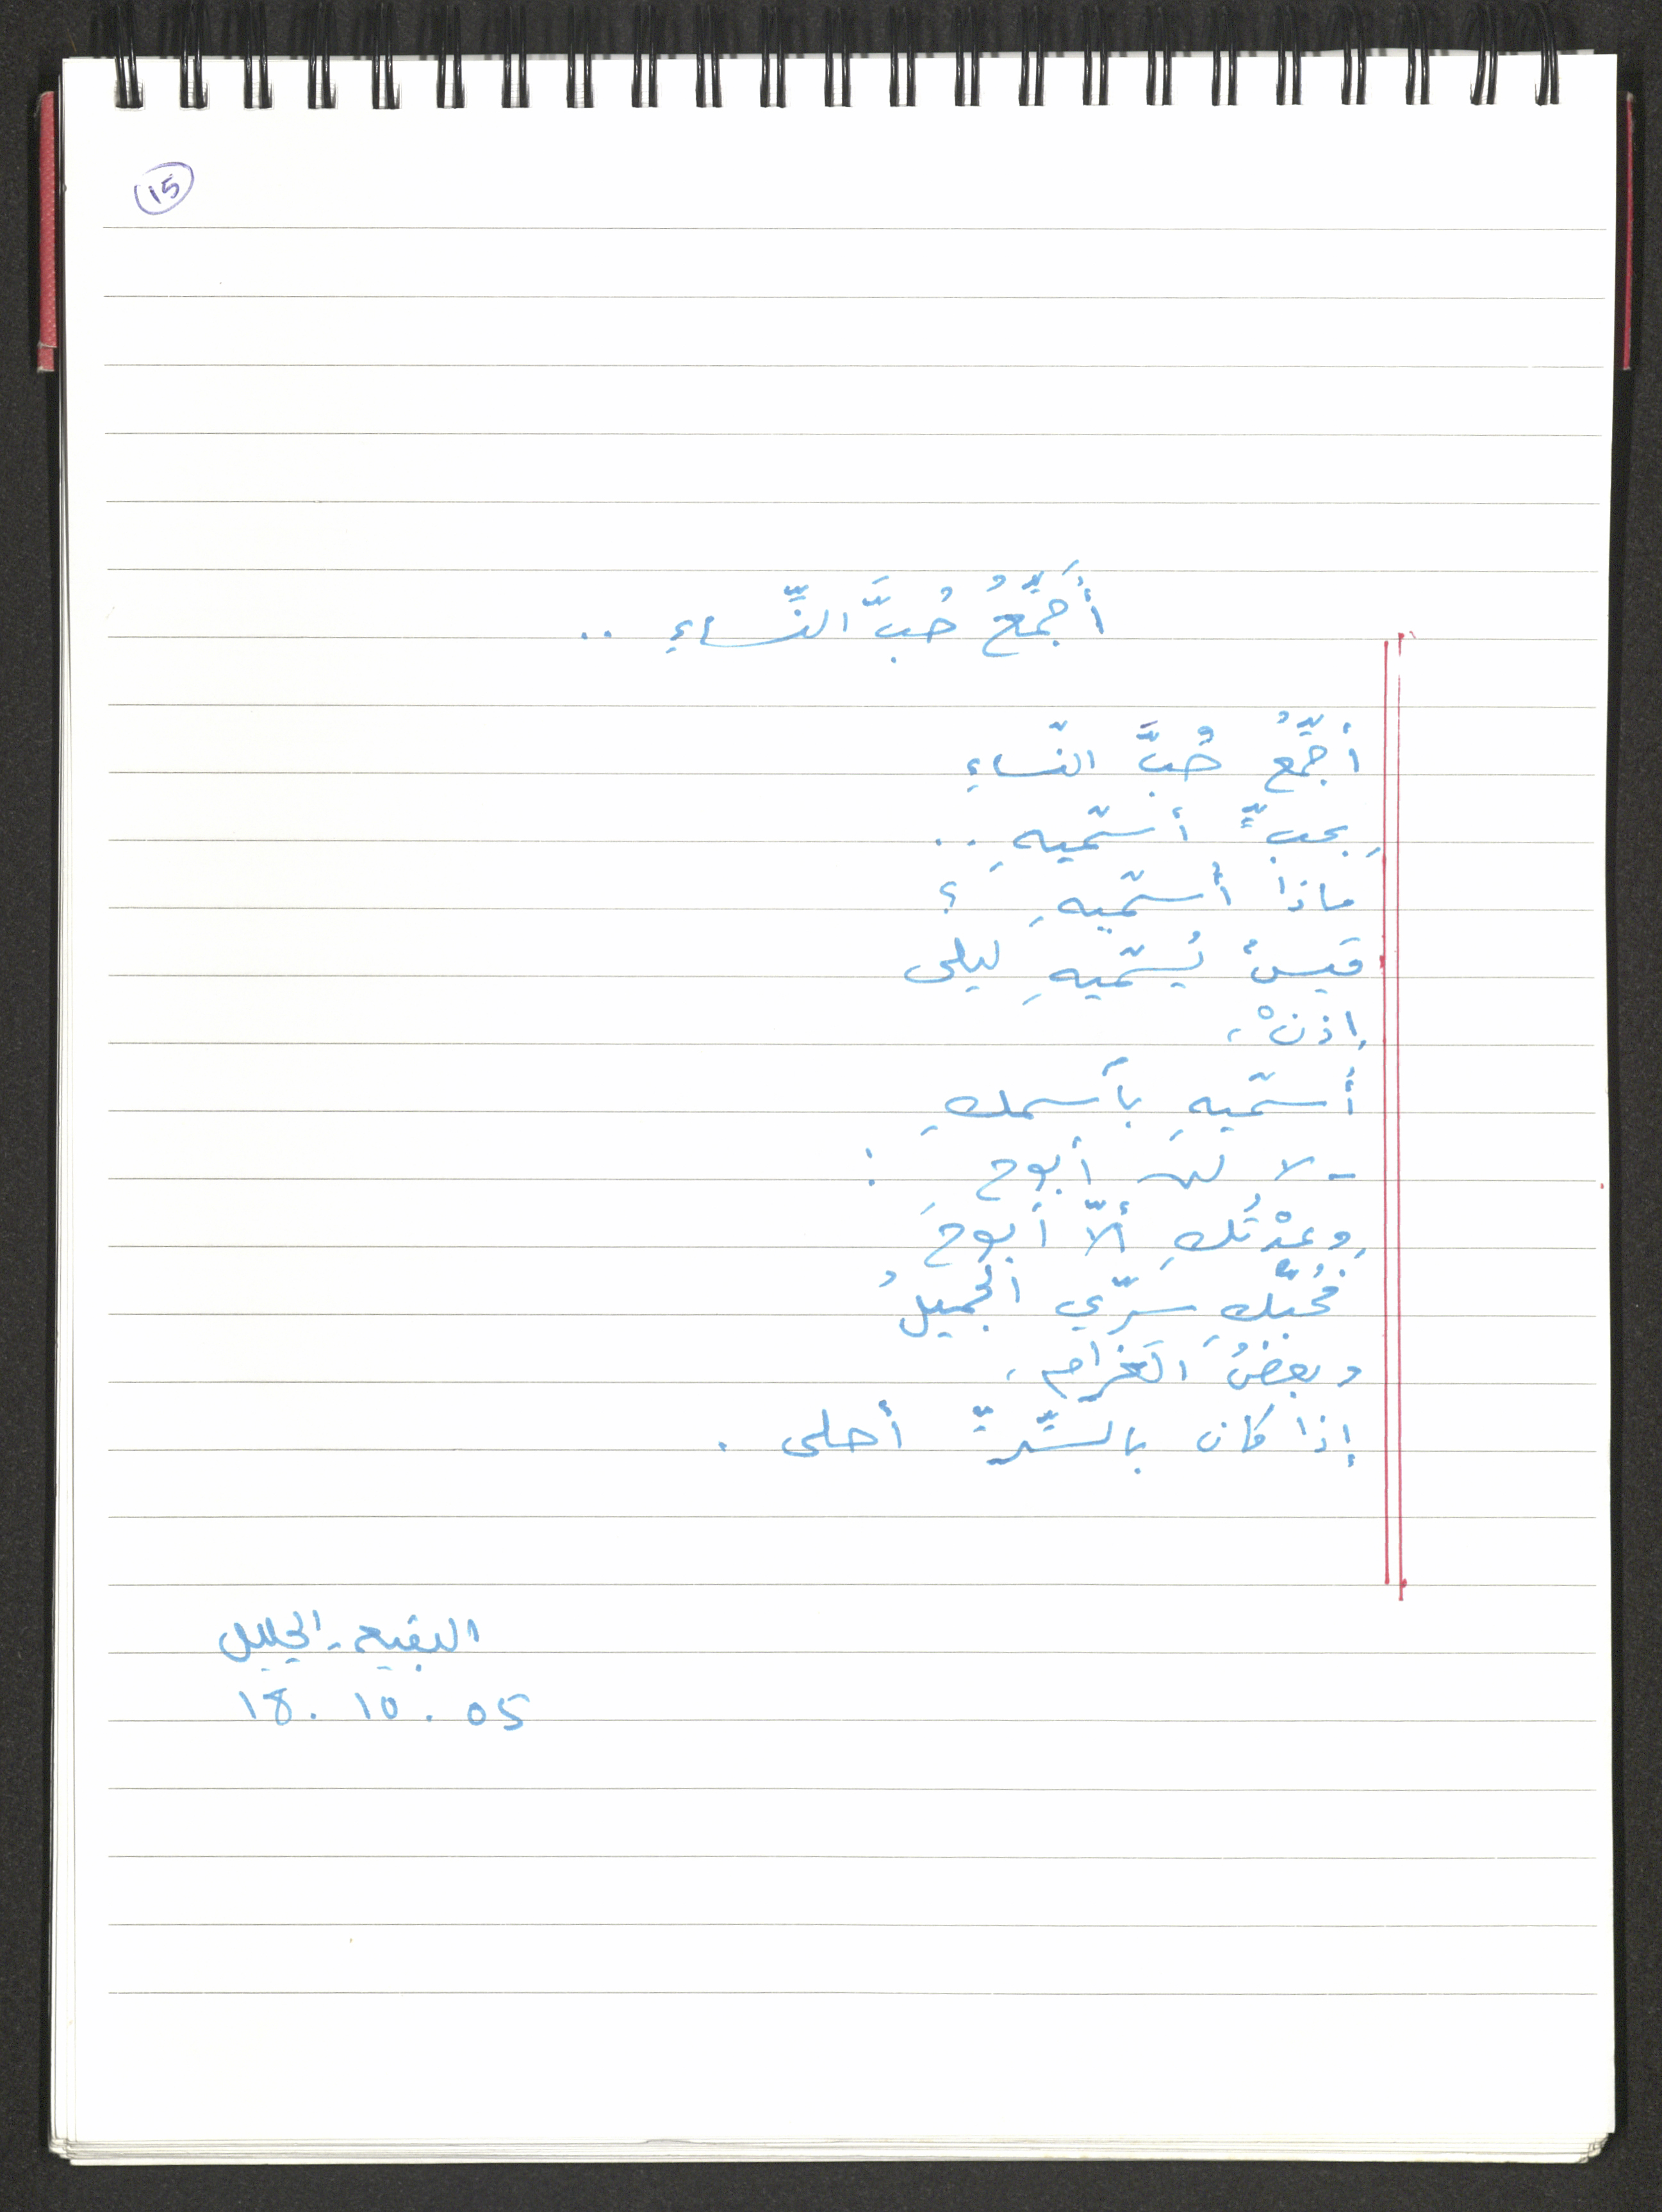 15
أُجَمِّعُ حُبَّ النِّساءِ ..
أجمِّعُ حُبَّ النّساءِ
بِحبٍّ أسمّيهِ ..
ماذا أسمّيهِ ؟
قيسٌ يُسمّيهِ ليلى
إذنْ،
أسمّيهِ بأسمكِ
- لا لن أبوح :
وعدْتُكِ ألاّ أبوحَ
فحُبّكِ سرّي الجميلُ
وبعضُ الغَرام،
إذا كان بالسِّرِّ أحلى .
البقيعه - الجليل
18. 10. 05